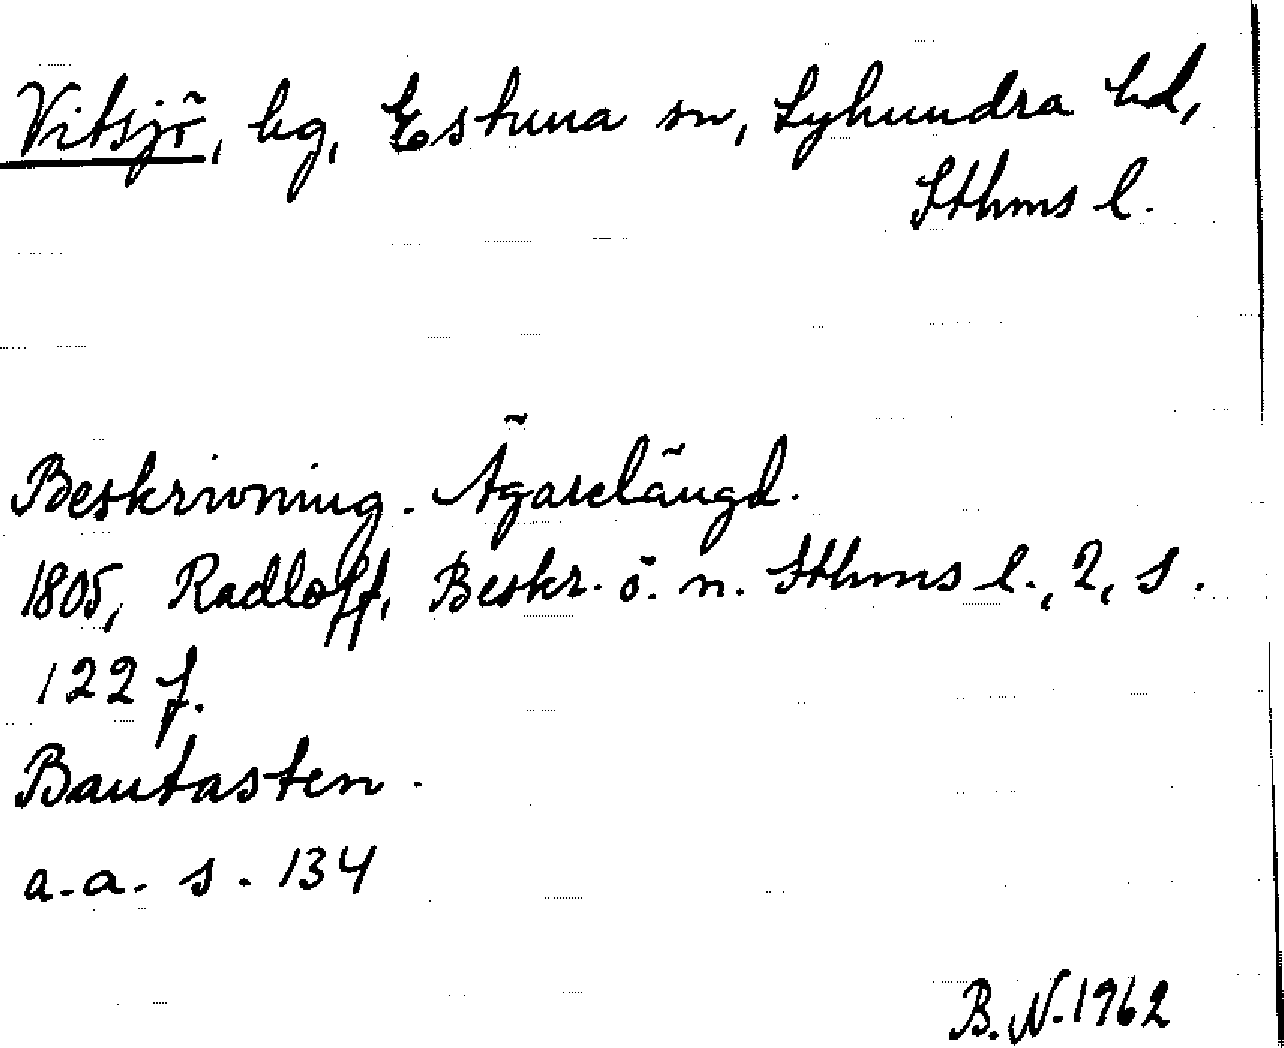 Vitsjö, hg, Estuna sn, Lyhundra hd,
Sthms l.
Beskrivning. Ägarelängd.
1805, Radloff, Beskr. ö. n. Sthms l., 2, s.
122 f.
Bautasten.
a.a. s. 134
B.N. 1962